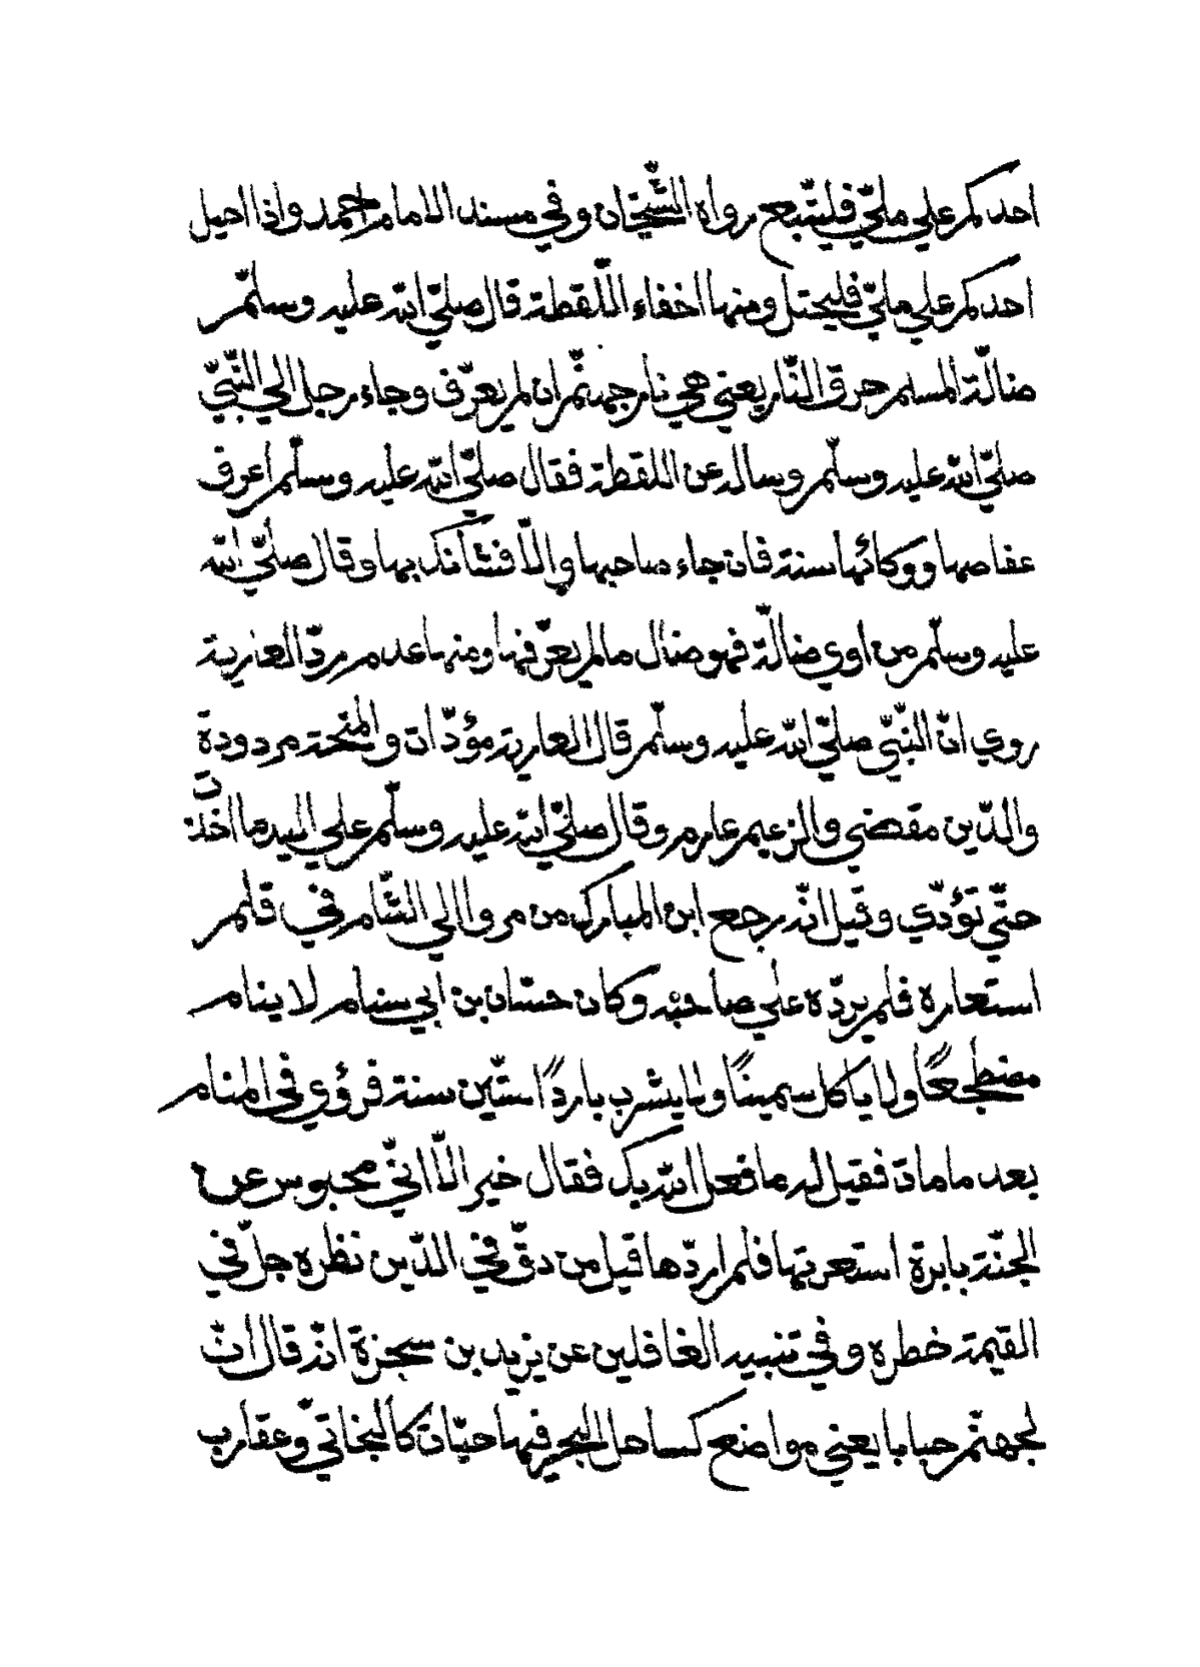 احدكم علي ملئّ فليتبع رواه الشّيخان وفي مسند الامام احمد واذا احيل
احدكم علي مليّ فليحتل ومنها اخفاء اللّقطة قال صلّي الله عليه وسلّم
ضالّة المسلم حرق النّار يعني هي نار جهنّم ان لم يعرّف وجاء رجل الي النّبيّ
صلّي الله عليه وسلّم وساله عن اللقطة فقال صلّي الله عليه وسلّم اعرف
عفاصها ووكائها سنة فان جاء صاحبها والّا فشأنك بها وقال صلّي الله
عليه وسلّم من اوي ضالّة فهو ضال ما لم يعرّفها ومنها عدم ردّ العارية
روي انّ النّبيّ صلّي الله عليه وسلّم قال العارية مؤدّات والمنحة مردودة
والدّين مقضي والزعيم غارم وقال صلّي الله عليه وسلّم علي اليد ما اخذت
حتّي تؤدّي وقيل انّه رجع ابن المبارك من مرو الي الشّام في قلم
استعاره فلم يردّه علي صاحبه وكان حسّان بن ابي سنام لا ينام
مضطجعًا ولا ياكل سمينًا ولا يشرب باردًا ستّين سنة فرؤي في المنام
بعد ما مات فقيل له ما فعل الله بك فقال خير الّا انّي محبوس عن
الجنّة بابرة استعرتها فلم اردّها قيل من دقّ في الدّين نظره جلّ في
القيمة خطره وفي تنبيه الغافلين عن يزيد بن سجزة انّه قال انّ
لجهنّم جبابا يعني مواضع كساحل البحر فيها حيّات كالبخاتيّ وعقارب